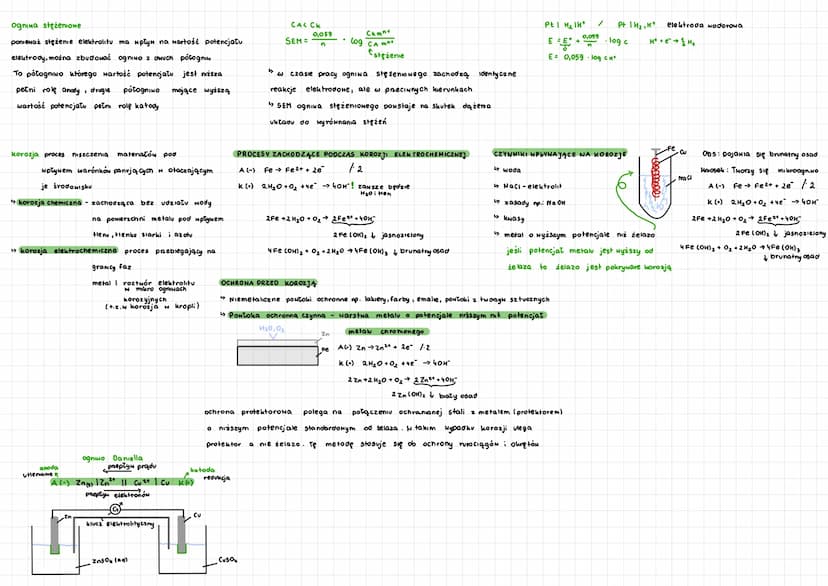 Ogniwa stężeniowe
ponieważ stężenie elektrolitu ma wpływ na wartość potencjału
elektrody, można zbudować ogniwo z dwóch półogniw
To półogniwo którego wartość potencjału jest niższa
pełni rolę anody, drugie półogniwo mające wyższą
wartość potencjału pełni rolę katody
CA < CK
SEM = 0,059/n · log CK Mⁿ⁺/CA Mⁿ⁺
stężenie
↳ w czasie pracy ogniwa stężeniowego zachodzą identyczne
reakcje elektrodowe, ale w przeciwnych kierunkach
↳ SEM ogniwa stężeniowego powstaje na skutek dążenia
układu do wyrównania stężeń
Pt | H₂ | H⁺ / Pt | H₂, H⁺ elektroda wodorowa
E = E° + 0,059/n · log c H⁺ + e⁻ → ½ H₂
0
E = 0,059 · log cH⁺
korozja proces niszczenia materiałów pod
wpływem warunków panujących w otaczającym
je środowisku
↳ korozja chemiczna - zachodząca bez udziału wody
na powierzchni metalu pod wpływem
tlenu, tlenków siarki i azotu
↳ korozja elektrochemiczna proces przebiegający na
granicy faz
metal | roztwór elektrolitu
w mikro ogniwach
korozyjnych
(t.z.w korozja w kropli)
PROCESY ZACHODZĄCE PODCZAS KOROZJI ELEKTROCHEMICZNEJ
A(-) Fe → Fe²⁺ + 2e⁻ /·2
K(+) 2H₂O + O₂ + 4e⁻ → 4OH⁻ ! zawsze będzie
H₂O i tlen
2Fe + 2H₂O + O₂ → 2Fe²⁺ + 4OH⁻
2Fe(OH)₂ ↓ jasnozielony
4Fe(OH)₂ + O₂ + 2H₂O → 4Fe(OH)₃ ↓ brunatny osad
CZYNNIKI WPŁYWAJĄCE NA KOROZJĘ
↳ woda
↳ NaCl - elektrolit
↳ zasady np.: NaOH
↳ kwasy
↳ metal o wyższym potencjale niż żelazo
jeśli potencjał metalu jest wyższy od
żelaza to żelazo jest pokrywane korozją
Fe
Cu
NaCl
Obs: pojawia się brunatny osad
Wniosek: Tworzy się mikroogniwo
A(-) Fe → Fe²⁺ + 2e⁻ /·2
K(+) 2H₂O + O₂ + 4e⁻ → 4OH⁻
2Fe + 2H₂O + O₂ → 2Fe²⁺ + 4OH⁻
2Fe(OH)₂ ↓ jasnozielony
4Fe(OH)₂ + O₂ + 2H₂O → 4Fe(OH)₃
↓ brunatny osad
OCHRONA PRZED KOROZJĄ
↳ Niemetaliczne powłoki ochronne np. lakiery, farby, emalie, powłoki z tworzyw sztucznych
↳ Powłoka ochronna czynna - warstwa metalu o potencjale niższym niż potencjał
metalu chronionego
H₂O, O₂
Zn
Fe
A(-) Zn → Zn²⁺ + 2e⁻ /·2
K(+) 2H₂O + O₂ + 4e⁻ → 4OH⁻
2Zn + 2H₂O + O₂ → 2Zn²⁺ + 4OH⁻
2Zn(OH)₂ ↓ biały osad
ochrona protektorowa polega na połączeniu ochranianej stali z metalem (protektorem)
o niższym potencjale standardowym od żelaza. W takim wypadku korozji ulega
protektor a nie żelazo. Tę metodę stosuje się do ochrony rurociągów i okrętów.
ogniwo Daniella
przepływ prądu
anoda
utlenianie
katoda
redukcja
A(-) Zn(s) | Zn²⁺ || Cu²⁺ | Cu K(+)
przepływ elektronów
Zn
Cu
klucz elektrolityczny
ZnSO₄ (aq)
CuSO₄